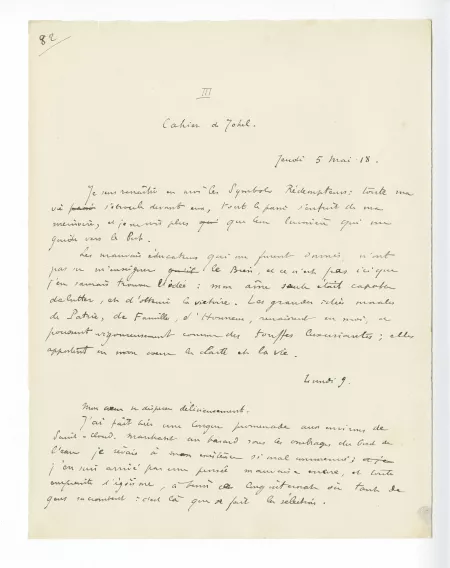 82
III
Cahier d Johel.
Jeudi 5 mai 18.
Je sens renaître en moi les Symboles Rédempteurs : toute ma
vie s'écroule devant eux, tout le passé s'enfuit de ma
mémoire, et je ne vois plus que leur lumière qui me
guide vers le But.
Les mauvais éducateurs qui me furent donnés, n'ont
pas su m'enseigner le Bien, et ce n'est pas ici que
j'en saurais trouver l'idée : mon âme seule était capable
de lutter, et d'obtenir la victoire. Les grandes idées
de Patrie, de Famille, d'Honneur, renaissent en moi, et
poussent vigoureusement comme des touffes luxuriantes ; elles
apportent en mon coeur la clarté et la vie.
Lundi 9.
Mon se disperse délicieusement.
J'ai fait hier une longue promenade aux environs de
Saint-Cloud. Marchant au hasard sous les ombrages du bord de
l'eau je rêvais à
j'en suis arrivé par une pensée mauvaise encore, et toute
empreinte d'égoïsme, à où tant de
gens : c'est là que se fait